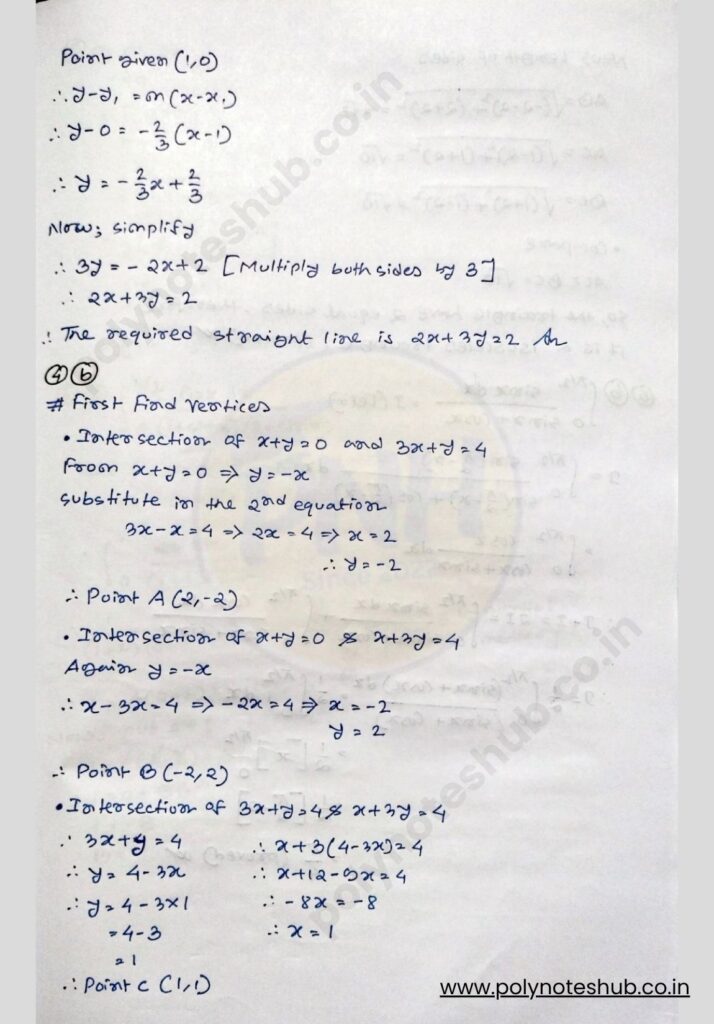 Point given (1,0)
∴ y-y₁ = m(x-x₁)
∴ y-0 = -2/3 (x-1)
∴ y = -2/3 x + 2/3
Now; simplify
∴ 3y = -2x+2 [Multiply both sides by 3]
∴ 2x+3y = 2
∴ The required straight line is 2x+3y=2 An
④ⓑ
# First Find vertices
• Intersection of x+y=0 and 3x+y=4
From x+y=0 => y=-x
substitute in the 2nd equation
3x-x=4 => 2x=4 => x=2
∴ y=-2
∴ Point A (2,-2)
• Intersection of x+y=0 & x+3y=4
Again y=-x
∴ x-3x=4 => -2x=4 => x=-2
y=2
∴ Point B (-2,2)
• Intersection of 3x+y=4 & x+3y=4
∴ 3x+y=4 ∴ x+3(4-3x)=4
∴ y=4-3x ∴ x+12-9x=4
∴ y=4-3×1 ∴ -8x=-8
=4-3 ∴ x=1
=1
∴ Point C (1,1)
www.polynoteshub.co.in
polynoteshub.co.in
polynoteshub.co.in